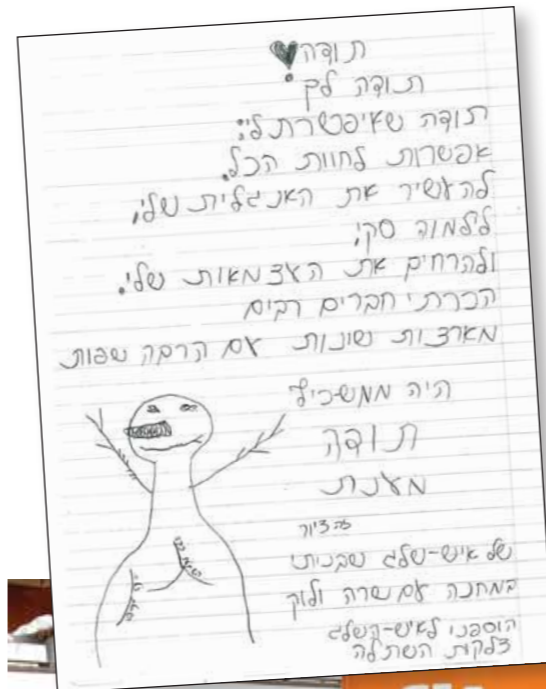 תודה
תודה לך
תודה שאיפשרת לי:
אפשרות לחוות הכל,
להעשיר את האנגלית שלי,
ללמוד סקי,
ולהרחיב את העצמאות שלי.
הכרתי חברים רבים
מארצות שונות עם הרבה שפות
היה ממשכיל
תודה
מענת
זה ציור
של איש-שלג שבניתי
במחנה עם שרה ולוק
הוספנו לאיש-השלג
צלקת השתלה